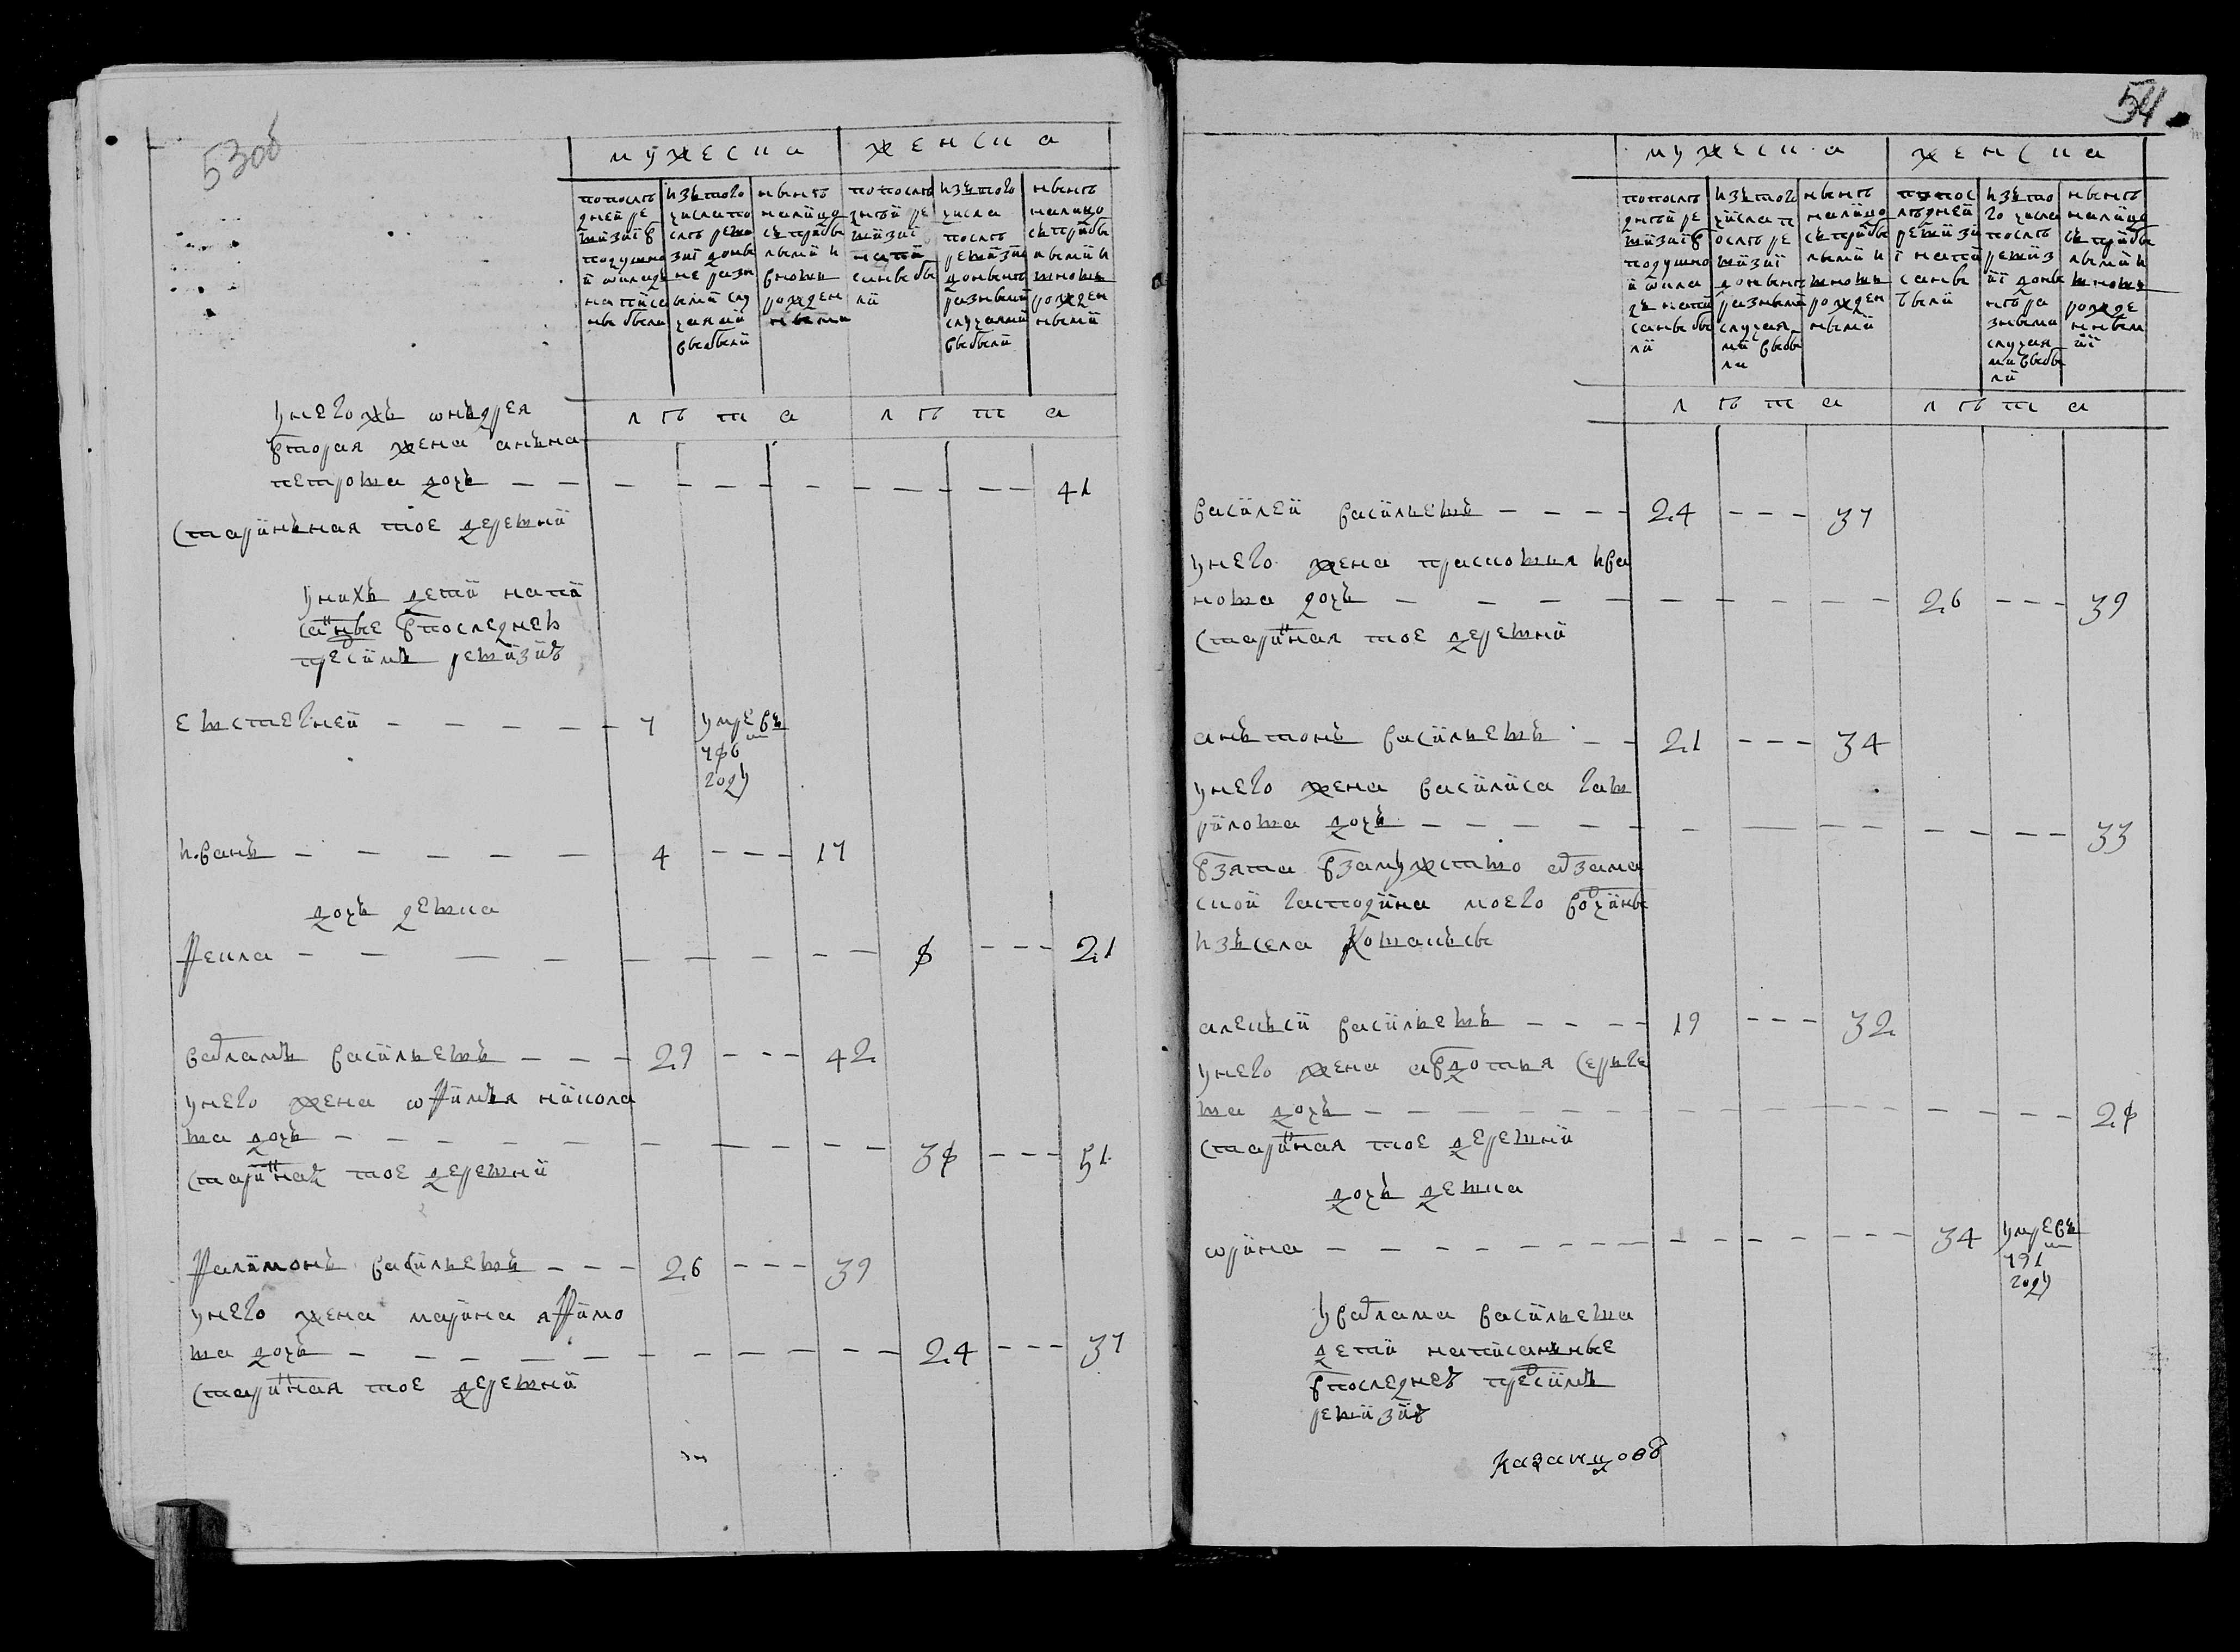 53об
мужеска женска
попослѣ
дней ре
визиі в
подушно
й окладъ
написа
ны были
изътого
числапо
слѣ реви
зиі доны
не разн
ыми слу
чаями
выбыли
нынѣ
налицо
съприбы
лыми и
вновь
рожден
ными
попослѣ
днѣй ре
визиі
напи
саны бы
ли
изътого
числа
послѣ
ревизии
донынѣ
разными
случаями
выбыли
нынѣ
налицо
съприбы
лыми и
вновь
рожден
ными
лѣта лѣта
унегожъ ондрея
вторая жена анъна
петрова дочь — — — — — 41
старинъная тое деревни
унихъ дети напи
саные впоследнею
пресимъ ревизию
евстегней — — — 7 умре въ
786м
году
иванъ — — — 4 — — — 17
дочь девка
фекла — — — 8 — — — 21
варламъ васильевъ — — — 29 — — — 42
унего жена офимья никола
ва дочь — — — 38 — — — 51
старинная тое деревни
фалимонъ васильевъ — — — 26 — — — 39
унего жена марина яфимо
ва дочь — — — 24 — — — 37
старинная тое деревни
54
мужеска женска
попослѣ
днѣй ре
визиі в
подушно
й окла
дъ напи
саны бы
ли
изътого
числа п
ослѣ ре
визиі
донынѣ
разными
случая
ми выбы
ли
нынѣ
налицо
съприбы
лыми и
вновь
рожден
ными
попос
лѣдней
ревизи
і напи
саны
были
изъто
го числа
послѣ
ревиз
иі доны
нѣ ра
зными
случая
ми выбы
ли
нынѣ
налицо
съприбы
лыми и
вновь
рожде
нным
иі
лѣта лѣта
василей васильевъ — — — — 24 — — — 37
унего жена прасковия ива
нова дочь — — — 26 — — — 39
старинная тое деревни
анътонъ васильевъ — — 21 — — — 34
унего жена василиса гав
рилова дочь — — — 33
взята взамужство арзама
ской гасподина моего вочины
изъсела
алекъси васильевъ — — — — 19 — — — 32
унего жена авдотья серьге
ва дочь — — — 28
старинная тое деревни
дочь девка
орина — — — 34 умре въ
791м
году
уварлама васильева
дети написанъные
впоследнею пресимъ
ревизию
Казанцовъ